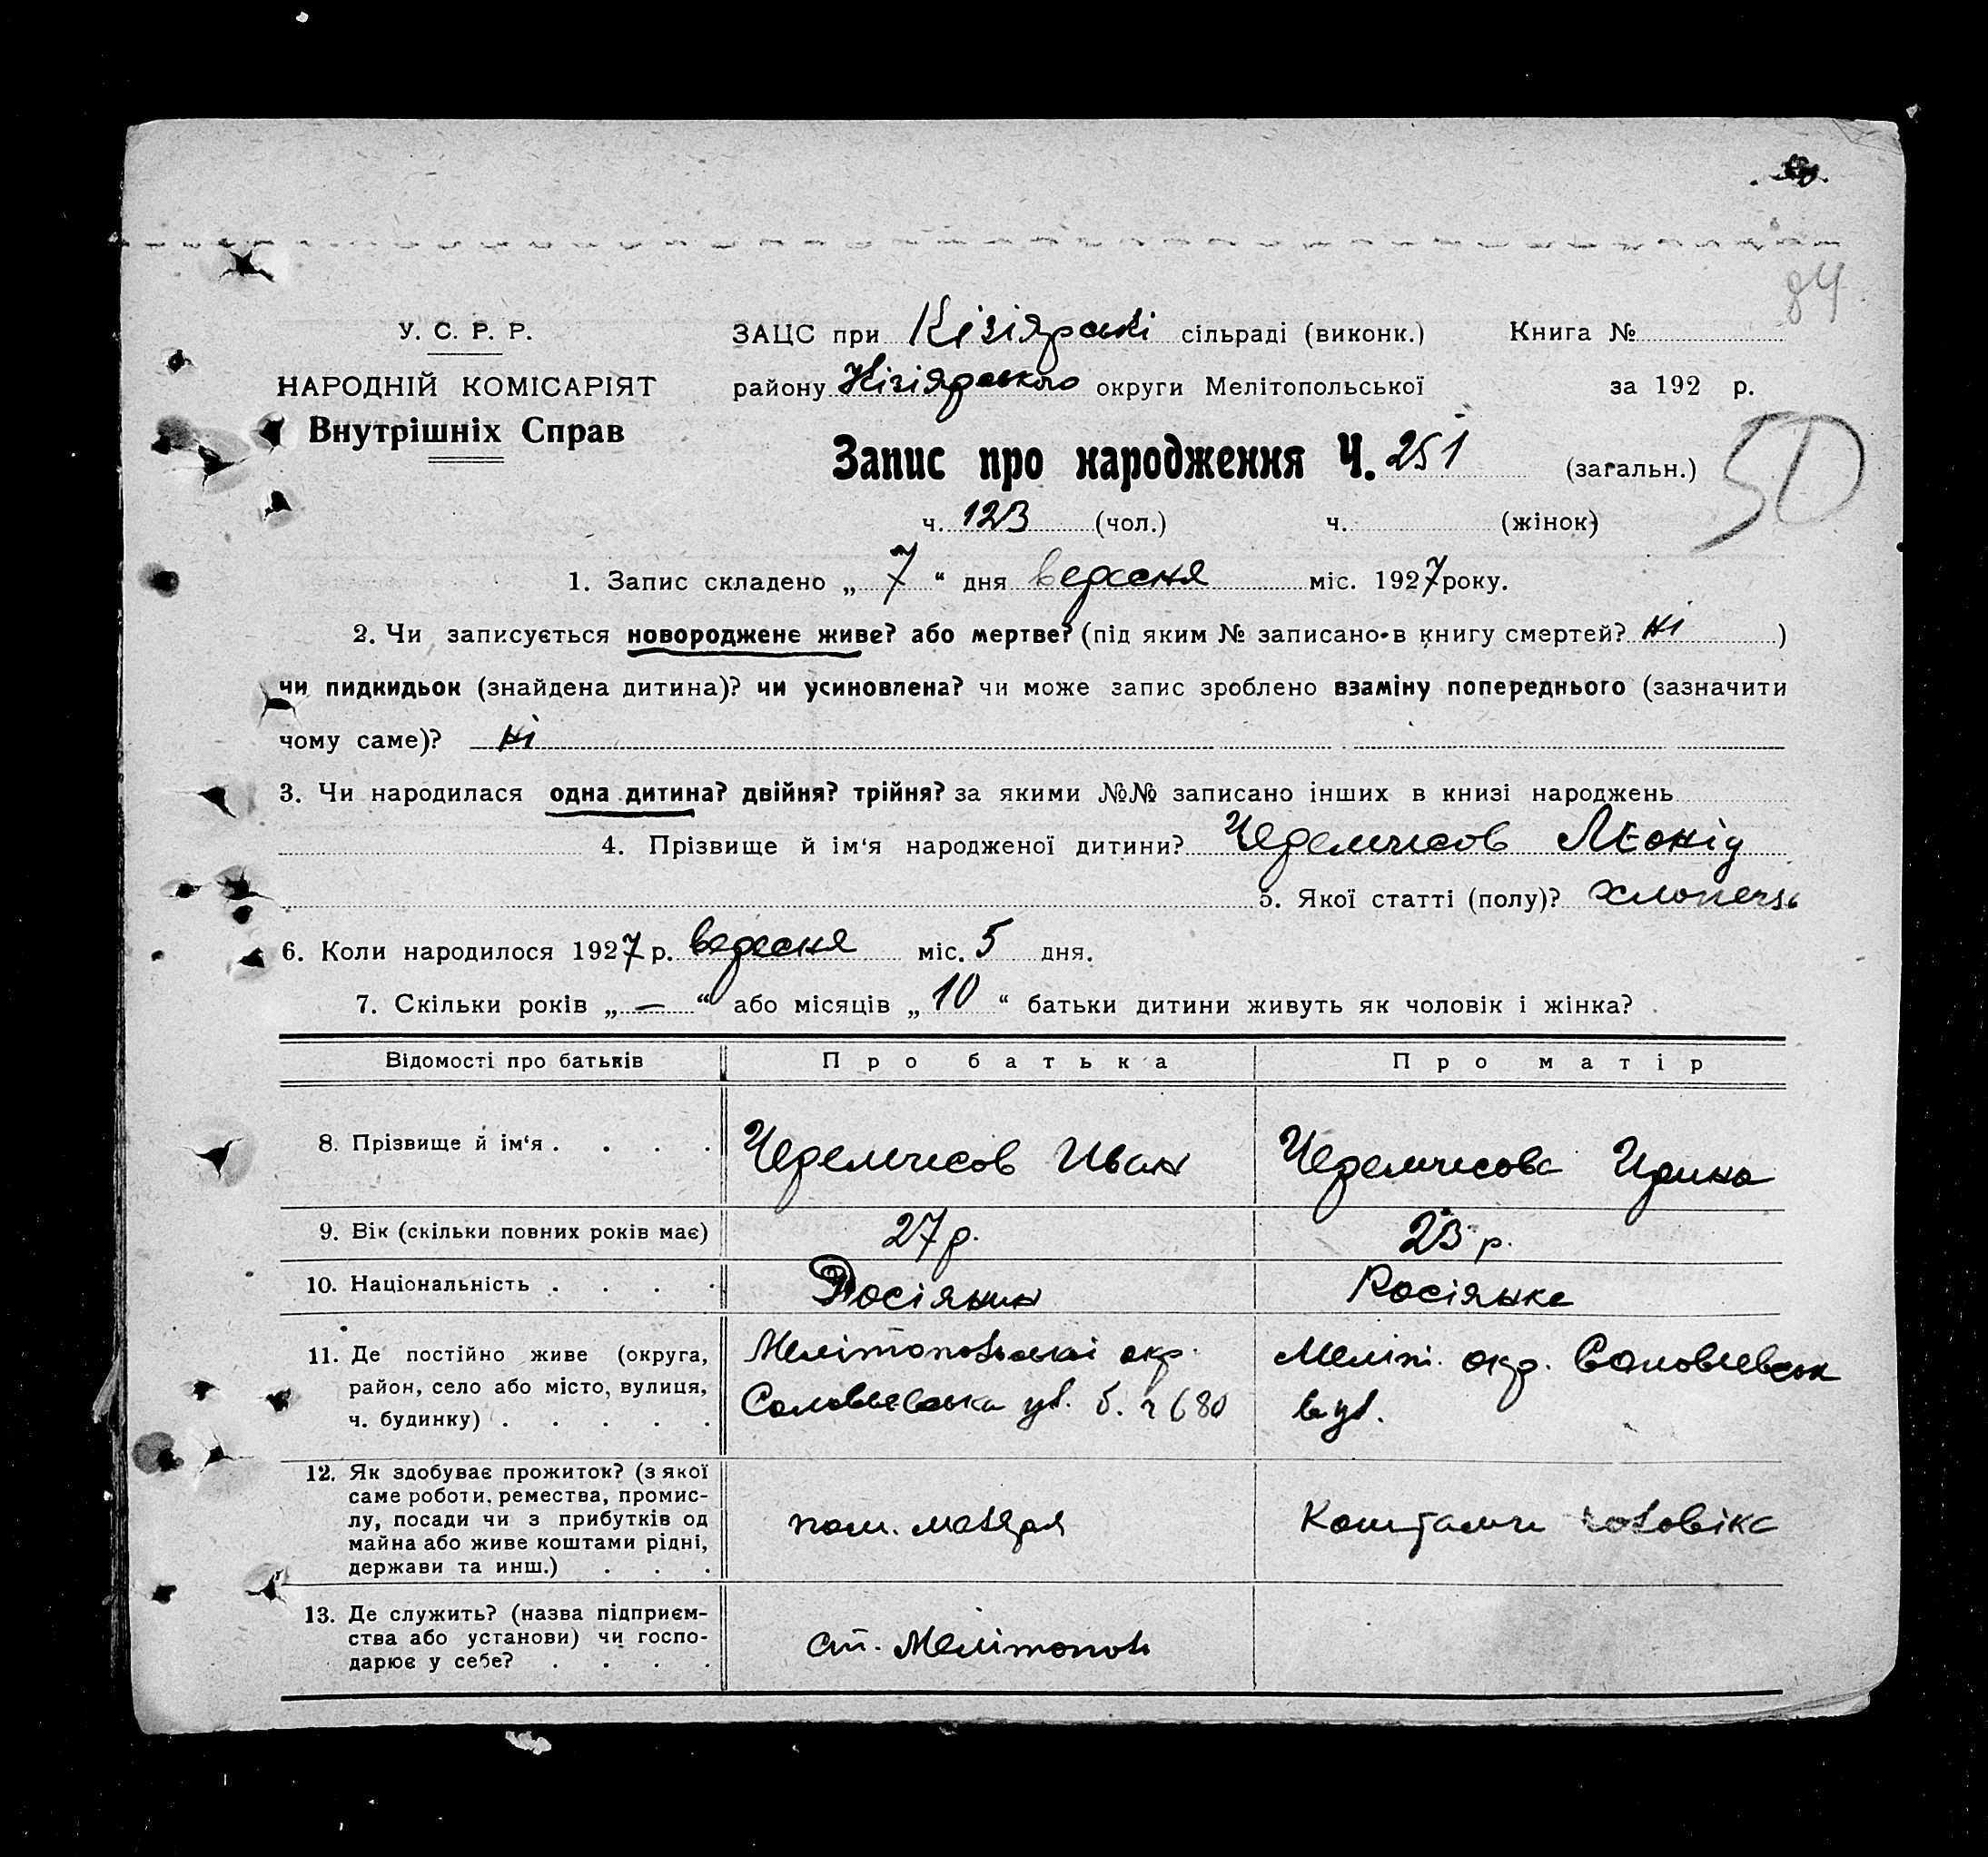 84
У. С. Р. Р.
НАРОДНІЙ КОМІСАРІЯТ
Внутрішніх Справ
ЗАЦС при Кізіярські сільраді (виконк.) Книга №
району Кізіярського округи Мелітопольської за 192 р.
Запис про народження Ч. 251 (загальн.)
50
ч. 123 (чол.) ч. (жінок)
1. Запис складено „ 7 “ дня вересня міс. 1927 року.
2. Чи записується новороджене живе? або мертве? (під яким № записано в книгу смертей? ні )
чи пидкидьок (знайдена дитина)? чи усиновлена? чи може запис зроблено взаміну попереднього (зазначити
чому саме)? ні
3. Чи народилася одна дитина? двійня? трійня? за якими №№ записано інших в книзі народжень
4. Прізвище й ім‘я народженої дитини? Черемисов Леонід
5. Якої статті (полу)? хлопець
6. Коли народилося 1927 р. вересня міс. 5 дня.
7. Скільки років „ — “ або місяців „ 10 “ батьки дитини живуть як чоловік і жінка?
Відомості про батьків Про батька Про матір
8. Прізвище й ім‘я . . . . Черемисов Иван Черемисова Ирина
9. Вік (скільки повних років має) 27 р. 23 р.
10. Національність . . . . Росіянин Росіянка
11. Де постійно живе (округа, Мелітопольські окр. Меліт. окр.
район, село або місто, вулиця, вул. б. ч 680 вул.
ч. будинку) . . . . .
12. Як здобуває прожиток? (з якої
саме роботи, ремества, промис-
лу, посади чи з прибутків од пом. маляря Коштами чоловіка
майна або живе коштами рідні,
держави та инш.) . . .
13. Де служить? (назва підприєм-
ства або установи) чи госпо- ст. Мелітополь
дарює у себе? . . . .